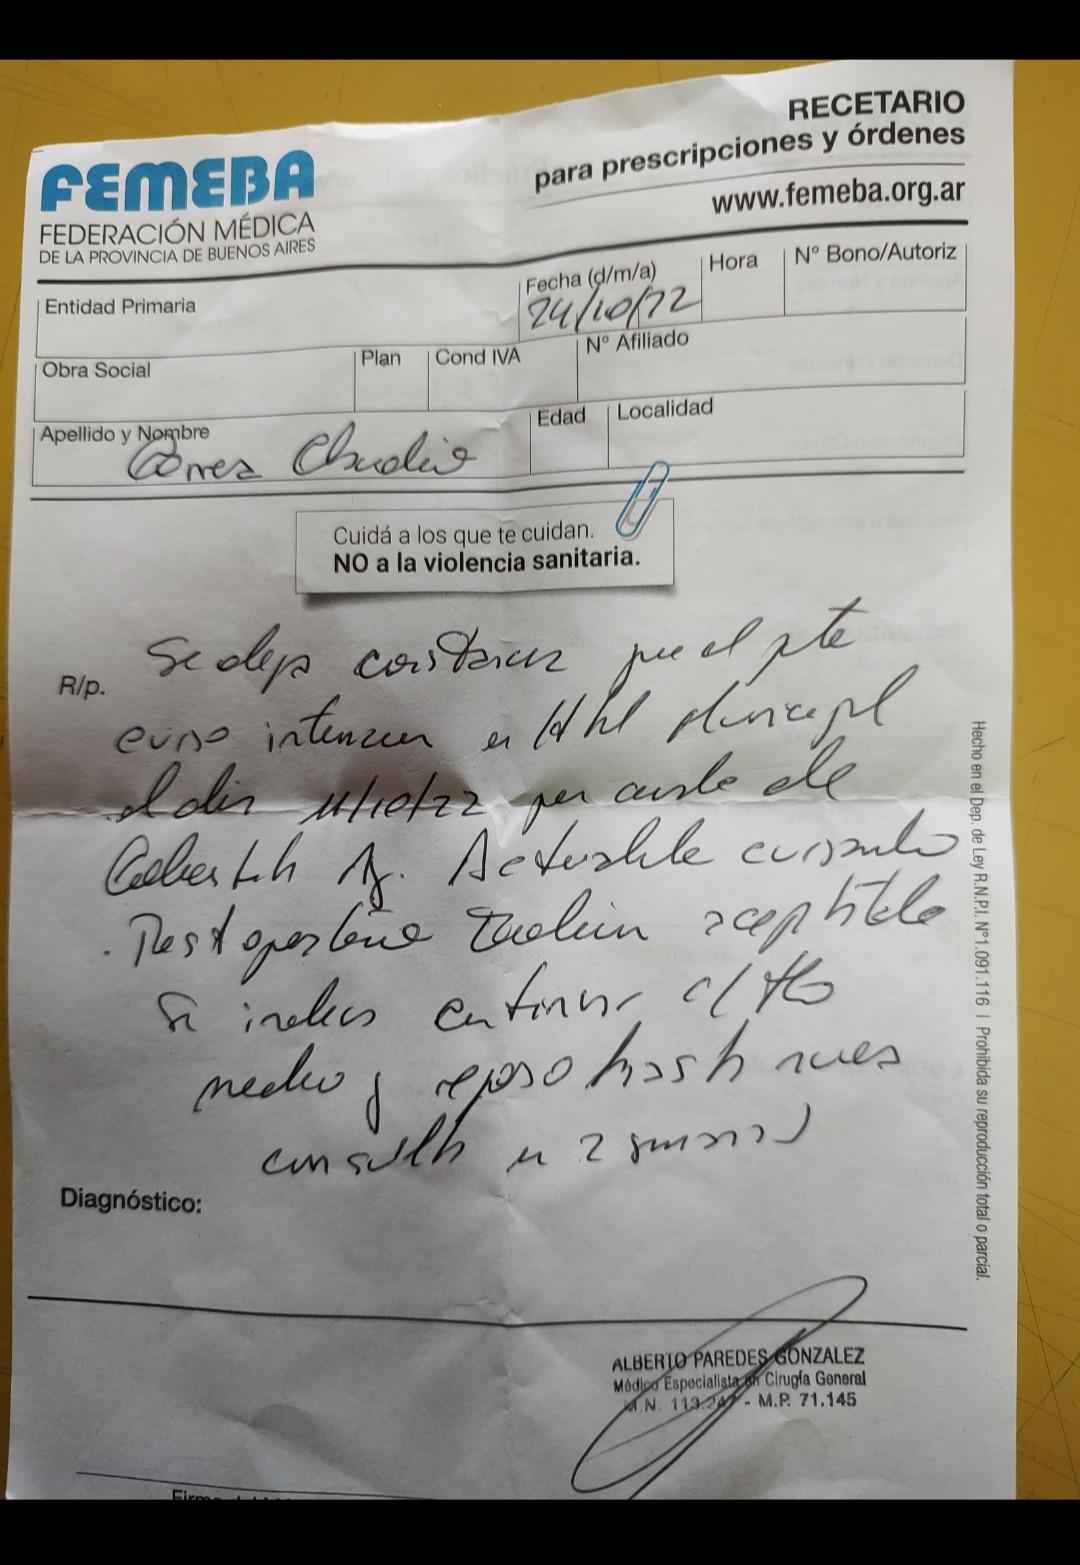 RECETARIO
para prescripciones y órdenes
www.femeba.org.ar
FEMEBA
FEDERACIÓN MÉDICA
DE LA PROVINCIA DE BUENOS AIRES
Entidad Primaria
Fecha (d/m/a)
24/10/22
Hora
Nº Bono/Autoriz
Obra Social
Plan
Cond IVA
Nº Afiliado
Apellido y Nombre
Claudio
Edad
Localidad
Cuidá a los que te cuidan.
NO a la violencia sanitaria.
R/p.
Se deja constancia que el pte
curso en Htl Municipal
el dia 11/10/22 por cuadro de
Ag. cursando
aceptable
Se indica continuar c/ tto
medico y reposo hasta nueva
consulta en 2 semanas
Diagnóstico:
ALBERTO PAREDES GONZALEZ
Médico Especialista en Cirugía General
M.N. 113.247 - M.P. 71.145
Hecho en el Dep. de Ley R.N.P.I. Nº1.091.116 | Prohibida su reproducción total o parcial.